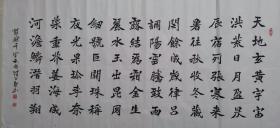 天地玄黃宇宙
洪荒日月盈昃
辰宿列張寒來
暑往秋收冬藏
閏餘成歲律呂
調陽雲騰致雨
露結為霜金生
麗水玉出崑岡
劍號巨闕珠稱
夜光果珍李柰
菜重芥薑海鹹
河淡鱗潛羽翔